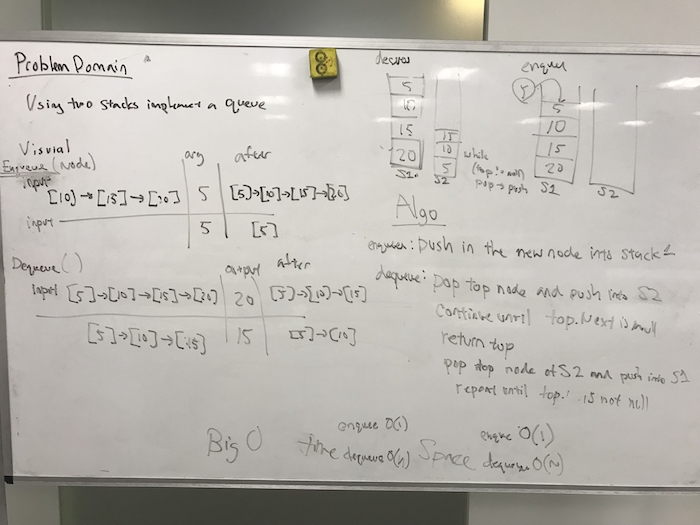 Problem Domain
Using two stacks implement a queue
Visual
Enqueue (Node)
input arg after
[10]→[15]→[20] 5 [5]→[10]→[15]→[20]
input 5 [5]
Dequeue() output after
input [5]→[10]→[15]→[20] 20 [5]→[10]→[15]
[5]→[10]→[15] 15 [5]→[10]
5
10
15
20
S1
15
10
5
S2
while
(top != null)
pop → push
enque
5
5
10
15
20
S1
S2
Algo
enqueue: Push in the new node into stack 1
dequeue: pop top node and push into S2
Continue until top.Next is null
return top
pop top node of S2 and push into S1
repeat until top! is not null
Big O
time
enque O(1)
dequeue O(n)
Space
enque O(1)
dequeue O(n)